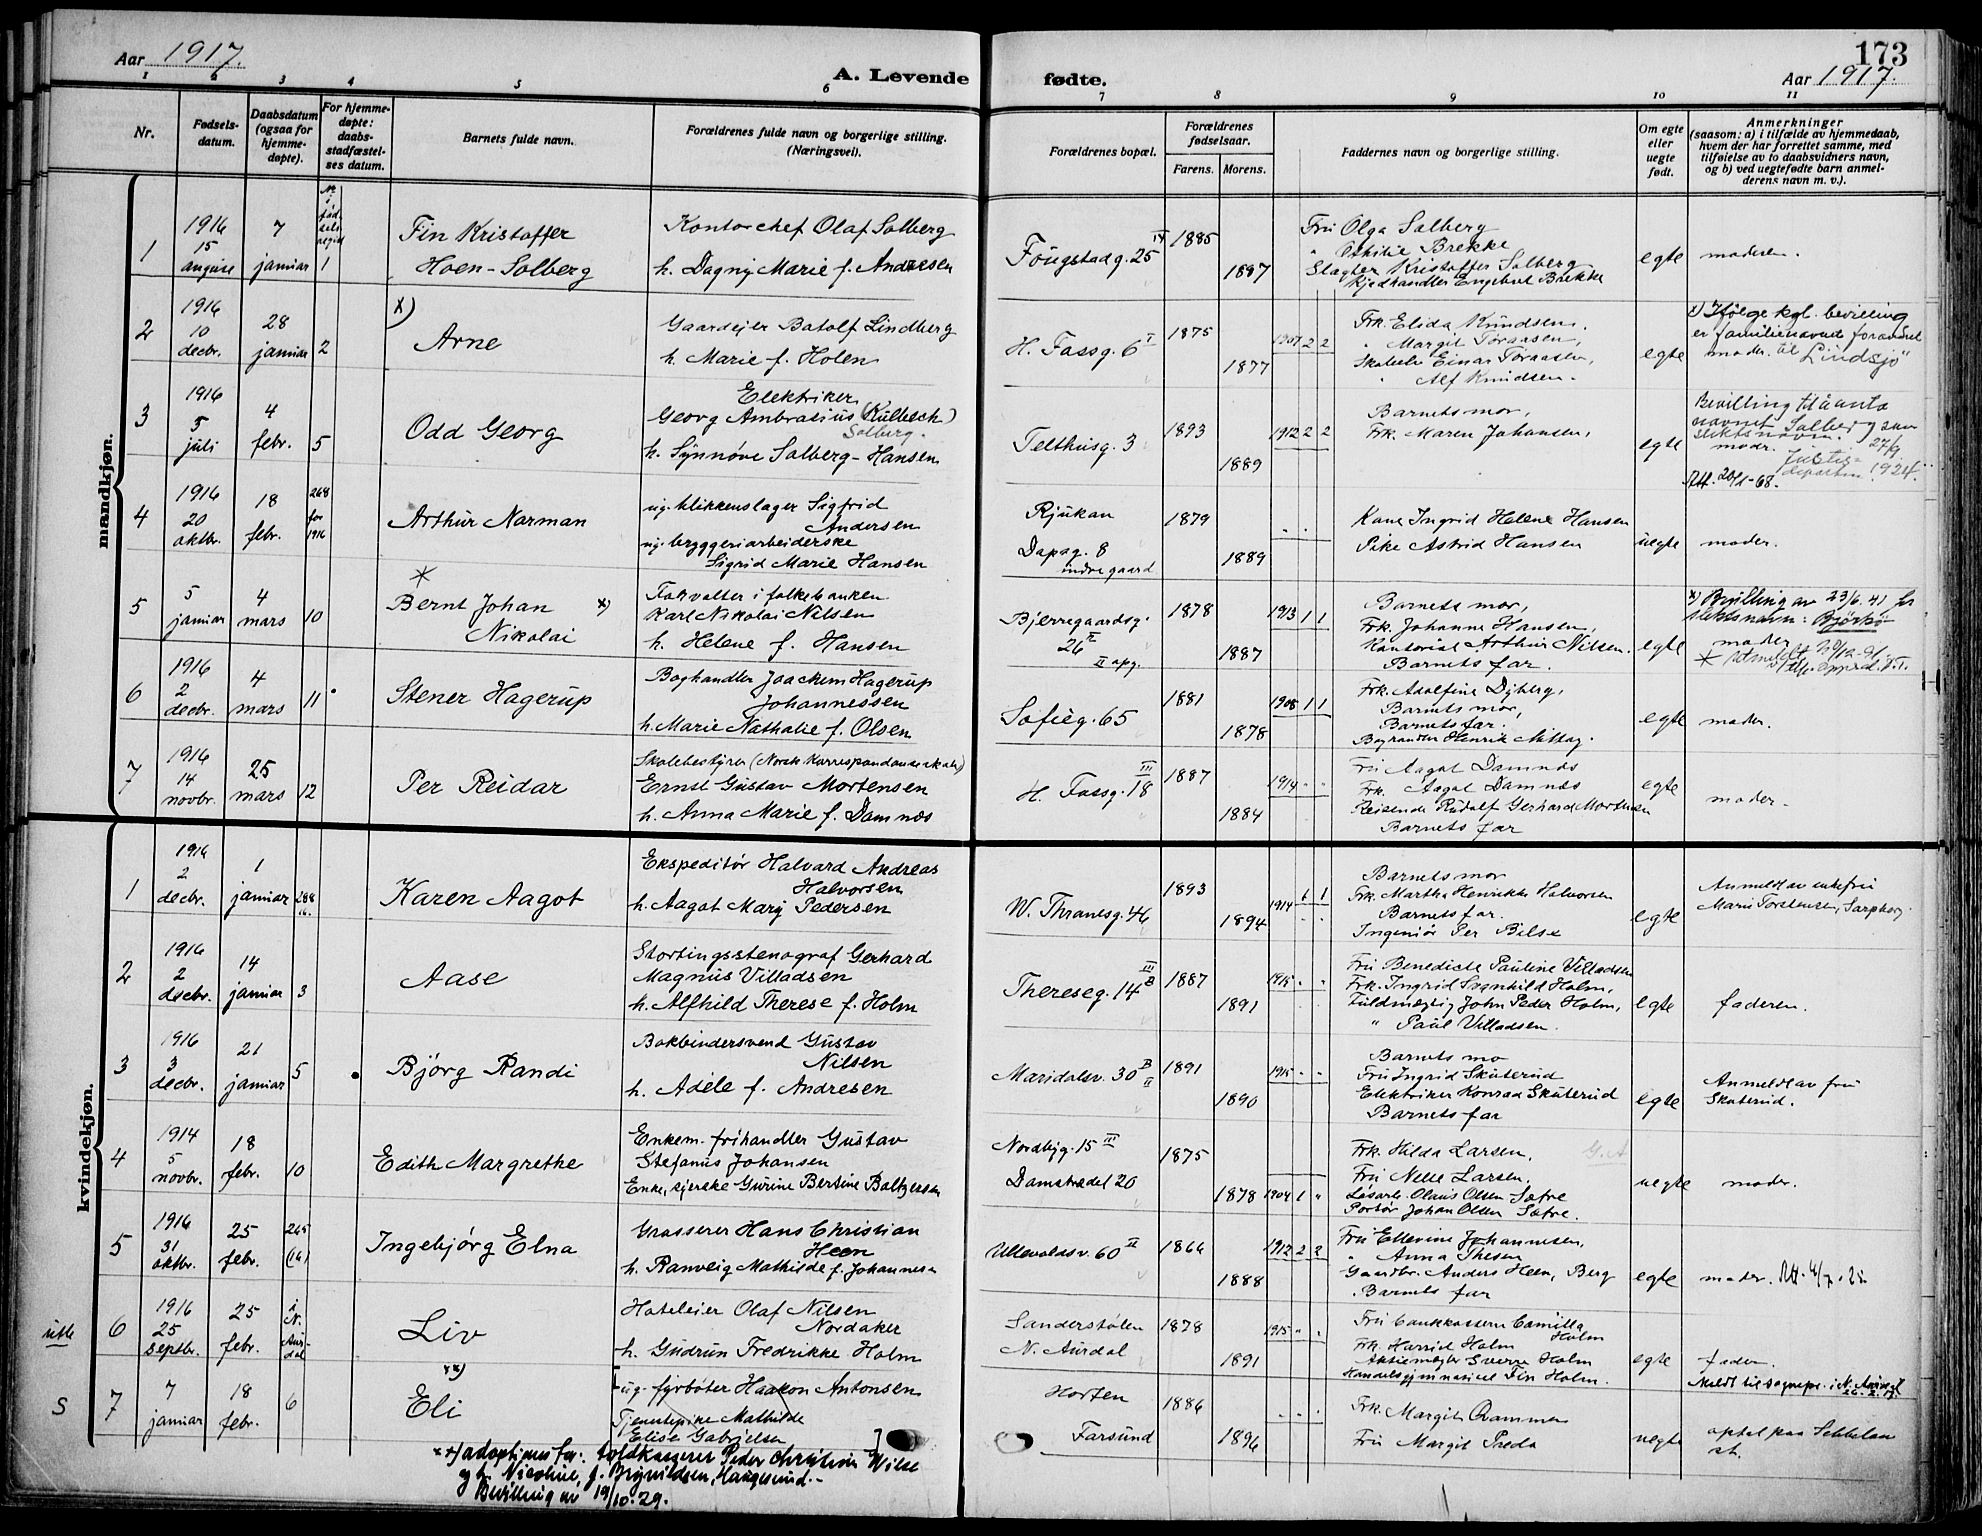 Aar 1917.
A. Levende
fødte.
173
Aar 1917.
1 2 3 4 5 6 7 8 9 10 11
Nr.
Fødsels-
datum.
Daabsdatum
(ogsaa for
hjemme-
døpte).
For hjemme-
døpte:
daabs-
stadfæstel-
ses datum.
Barnets fulde navn.
Forældrenes fulde navn og borgerlige stilling.
(Næringsvei).
Forældrenes bopæl.
Forældrenes
fødselsaar.
Farens. Morens.
Faddernes navn og borgerlige stilling.
Om egte
eller
uegte
født.
Anmerkninger
(saasom: a) i tilfælde av hjemmedaab,
hvem der har forrettet samme, med
tilføielse av to daabsvidners navn,
og b) ved uegtefødte barn anmel-
derens navn m. v.).
mandkjøn.
1
1916
15
august
7
januar
1
Fin Kristoffer
Hoen-Solberg
Kontorchef Olaf Solberg
h. Dagny Marie f. Andresen
Fougstadg. 25 IV
1885
1887
Fru Olga Solberg
" Othilie Brekke
Slagter Kristoffer Solberg
Kjødhandler Engebret Brekke
egte
moderen.
2
1916
10
decbr.
28
januar
2
x)
Arne
Gaardejer Batolf Lindberg
h. Marie f. Holen
H. Fassg. 6 I
1875
1877
1907 2 2
Frk. Elida Knudsen.
" Margit Toraasen,
Einar Toraasen,
" Alf Knudsen.
egte
x) Ifølge kgl. bevilling
er familienavnet forandret
moder. til "Lindsjö"
3
1916
5
juli
4
febr.
5
Odd Georg
Elektriker
Georg Ambrosius (Kullesch)
Solberg.
h. Synnøve Solberg-Hansen
Telthusg. 3
1893
1889
1912 2 2
Barnets mor,
Frk. Maren Johansen,
egte
Bevilling til å anta
navnet Solberg som
slektsnavn. 27/9
moder. Justis-
departem. 1924.
4
1916
20
oktbr.
18
febr.
268
for
1916
Arthur Norman
ug. blikkenslager Sigfrid
Andersen
ug. bryggeriarbeiderske
Sigrid Marie Hansen
Rjukan
Dapsg. 8
indre gaard
1879
1889
Kone Ingrid Helene Hansen
Pike Astrid Hansen
uegte
moder.
5
5
januar
4
mars
10
Bernt Johan x)
Nikolai
Forvalter i folkebanken
Karl Nikolai Nilsen
h. Helene f. Hansen
Bjerregaardsg.
26 II
II opg.
1878
1887
1913 1 1
Barnets mor,
Frk. Johanne Hansen,
Kontorist Arthur Nilsen.
Barnets far.
egte
x) Bevilling av 23/6.41 for
slektsnavn: Bjørbo
moder
6
1916
2
decbr.
4
mars
11
Stener Hagerup
Boghandler Joachem Hagerup
Johannessen
h. Marie Nathalie f. Olsen
Sofieg. 65
1881
1878
1908 1 1
Frk. Adolfine Dyberg,
Barnets mor,
Barnets far.
Boghandler Henrik Mittag.
egte
moder.
7
1916
14
novbr.
25
mars
12
Per Reidar
Skolebestyrer (Norsk Korrespondanseskole)
Ernst Gustav Mortensen
h. Anna Marie f. Damnæs
H. Fassg. 18 III
1887
1884
1914 " "
Fru Aagot Damnæs
Frk. Aagot Damnæs
Reisende Rudolf Gerhard Mortensen
Barnets far
egte
moder.
kvindekjøn.
1
1916
2
decbr.
1
januar
288
16.
Karen Aagot
Ekspeditør Halvard Andreas
Halvorsen
h. Aagot Mary Pedersen
W. Thranesg. 46
1893
1894
1914 1 1
Barnets mor
Frk. Martha Henrikke Halvorsen
Barnets far.
Ingeniør Per Bilse
egte
Anmeldt av enkefru
Marie Torstensen, Sarpborg.
2
1916
2
decbr.
14
januar
3
Aase
Stortingsstenograf Gerhard
Magnus Villadsen
h. Alfhild Therese f. Holm
Thereseg. 14 B III
1887
1891
1915 " "
Fru Benedicte Pauline Villadsen
Frk. Ingrid Svanhild Holm,
Fuldmægtig John Peder Holm,
" Paul Villadsen.
egte
faderen.
3
1916
3
decbr.
21
januar
5
Bjørg Randi
Bokbindersvend Gustav
Nilsen
h. Adele f. Andresen
Maridalsv. 30 B II
1891
1890
1915 " "
Barnets mo
Fru Ingrid Skuterud
Elektriker Konrad Skuterud
Barnets far
egte
Anmeldt av fru
Skuterud.
4
1914
5
novbr.
18
febr.
10
Edith Margrethe
Enkem. frøhandler Gustav
Stefanus Johansen
Enke, syerske Gurine Bertine Baltzersen
Nordbyg. 15 III
Damstrædet 20
1875
1878
1904 1 "
Frk. Hilda Larsen,
Fru Nelle Larsen,
Løsarb. Olaus Olsen Sætre
Portør Johan Olsen Sætre.
G. A
uegte
moder.
5
1916
31
oktbr.
25
febr.
265
(16)
Ingebjørg Elna
Grosserer Hans Christian
Heen
h. Ranveig Mathilde f. Johannesen
Ullevoldsv. 60 II
1866
1888
1912 2 2
Fru Ellevine Johannesen,
" Anna Thesen
Gaardbr. Anders Heen, Berg
Barnets far
egte
moder.
utb
6
1916
25
septbr.
25
febr.
i
N.
Aur-
dal
Liv
Hoteleier Olaf Nilsen
Nordaker
h. Gudrun Fredrikke Holm
Sanderstølen
N. Aurdal
1878
1891
1915 " "
Fru bankkasserer Camilla
Holm
Frk. Harrid Holm
Aktiemægler Sverre Holm
Handelsgymnasiast Fin Holm.
egte
fader.
Meldt til sognepr. i N. Aurdal
S
7
7
januar
18
febr.
6
xx)
Eli
ug. fyrbøter Haakon Antonsen
Tjenestepike Mathilde
Elise Gabrielsen
Horten
Farsund
1886
1896
Frk. Margit Qvammen
Fru Margit Preda
uegte
optat paa Sebbelow
st.
xx) adoptions for: toldkasserer Peder Christian Wilse
og h. Nicoline, f. Brynildsen, Haugesund.-
Bevilling av 19/10.29.